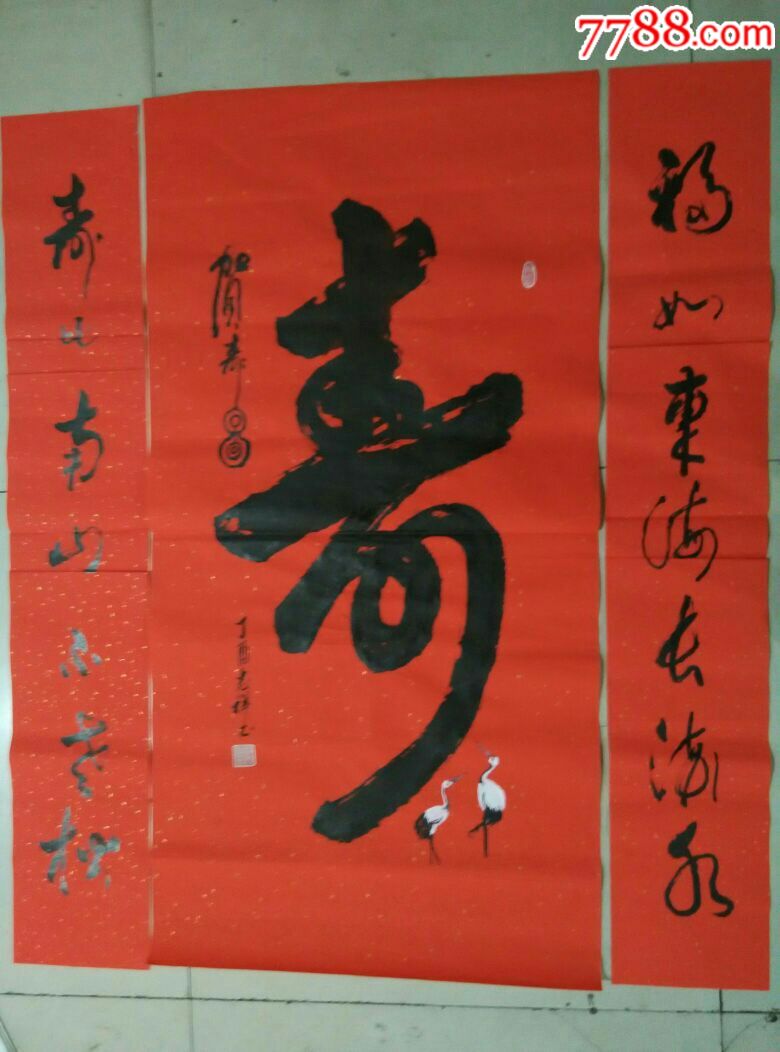 7788.com
福如東海長流水
壽
賀壽
丁酉克祥书
壽比南山不老松